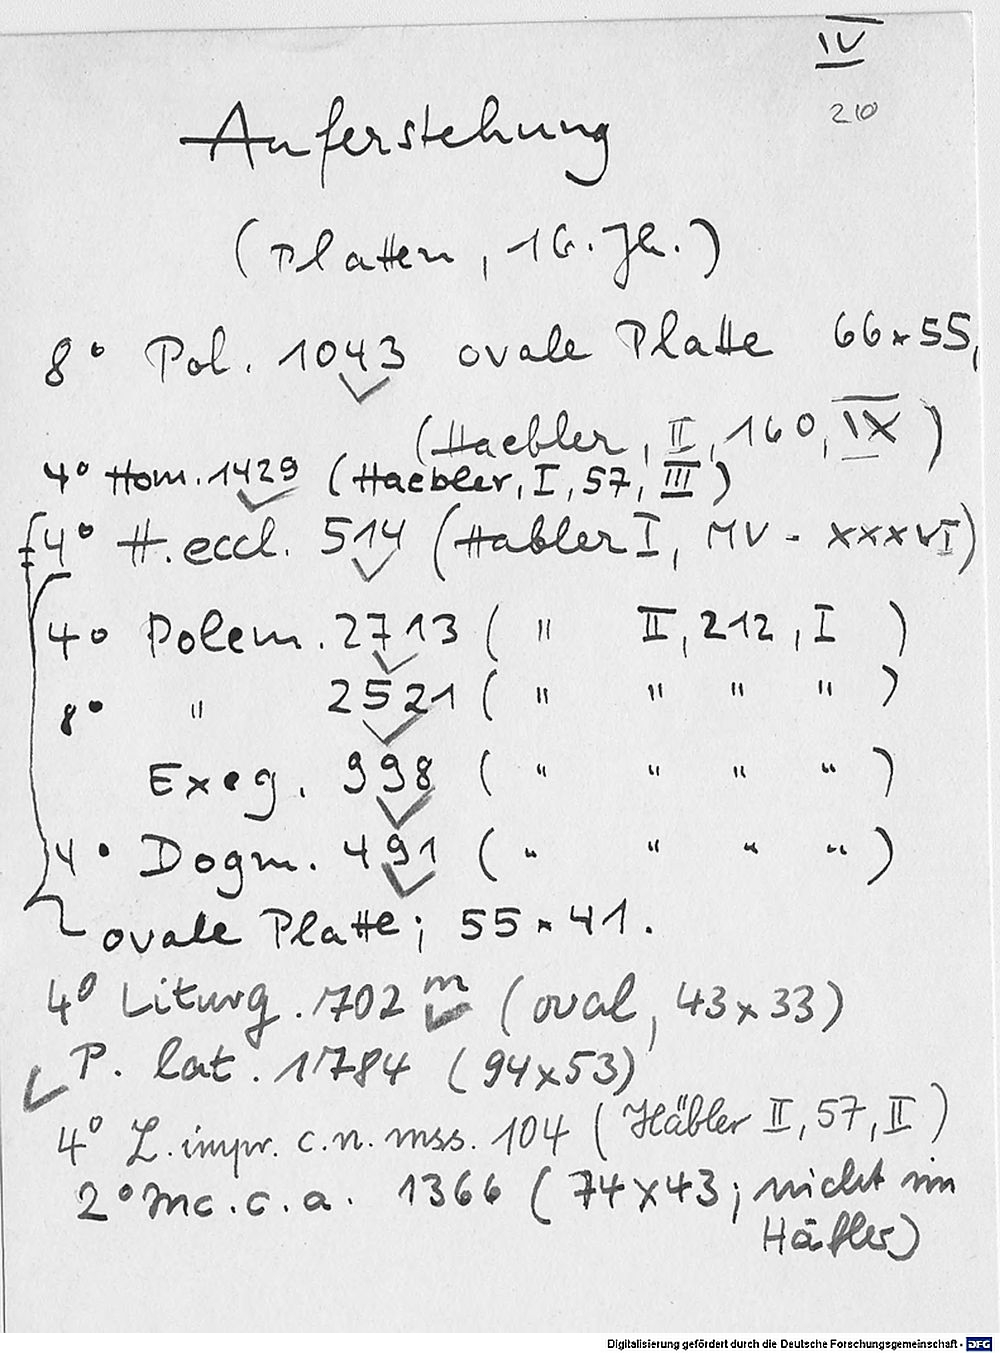 IV
210
Auferstehung
(Platten, 16. Jh.)
8° Pol. 1043 ovale Platte 66x55,
(Haebler, II, 160, IX)
4° Hom. 1429 (Haebler, I, 57, III)
4° H. eccl. 514 (Habler I, MV - XXXVI)
4° Polem. 2713 ( " II, 212, I )
8° " 2521 ( " " " " )
Exeg. 998 ( " " " " )
4° Dogm. 491 ( " " " " )
ovale Platte; 55 x 41.
4° Liturg. 702 m (oval, 43 x 33)
P. lat. 1784 (94x53)
4° L. impr. c. n. mss. 104 (Häbler II, 57, II)
2° Inc. c. a. 1366 (74x43; nicht im
Häbler)
Digitalisierung gefördert durch die Deutsche Forschungsgemeinschaft - DFG